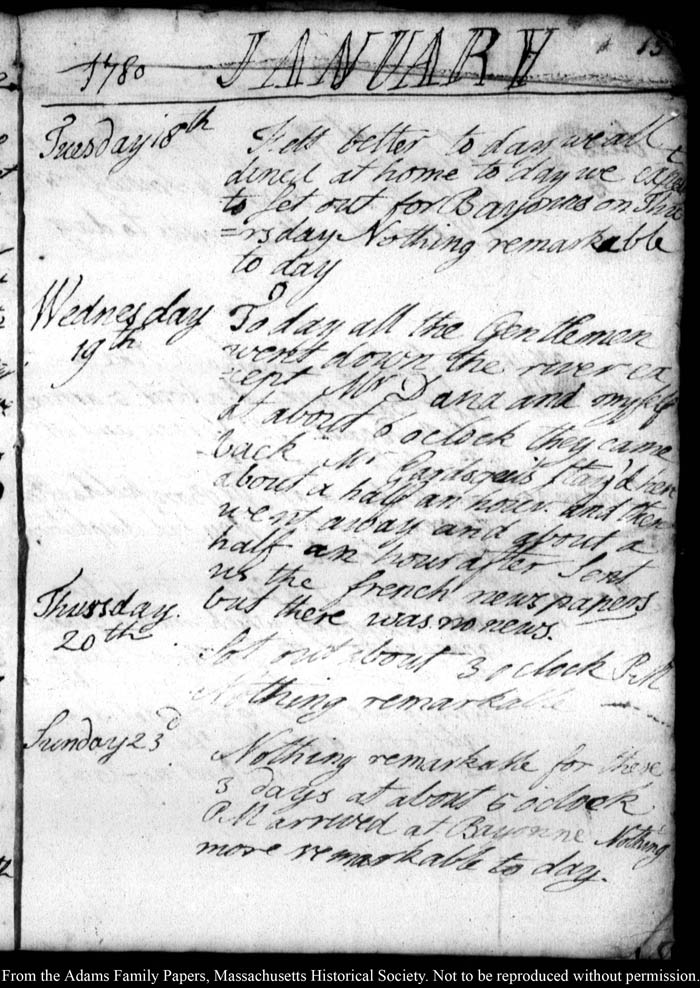 15
1780 JANUARY
Tuesday 18th
Felt better to day we all
dined at home to day we expect
to set out for Bayonne on Thu
=rsday Nothing remarkable
to day
Wednesday
19th
To day all the Gentlemen
went down the river ex
cept Mr Dana and myself
at about 6 oclock they came
back Mr stay'd here
about a half an hour and then
went away and about a
half an hour after sent
us the french newspapers
but there was no news.
Thursday
20th
Set out about 3 oclock PM
Nothing remarkable
Sunday 23d
Nothing remarkable for these
3 days at about 6 oclock
PM arrived at Bayonne Nothing
more remarkable to day.
From the Adams Family Papers, Massachusetts Historical Society. Not to be reproduced without permission.